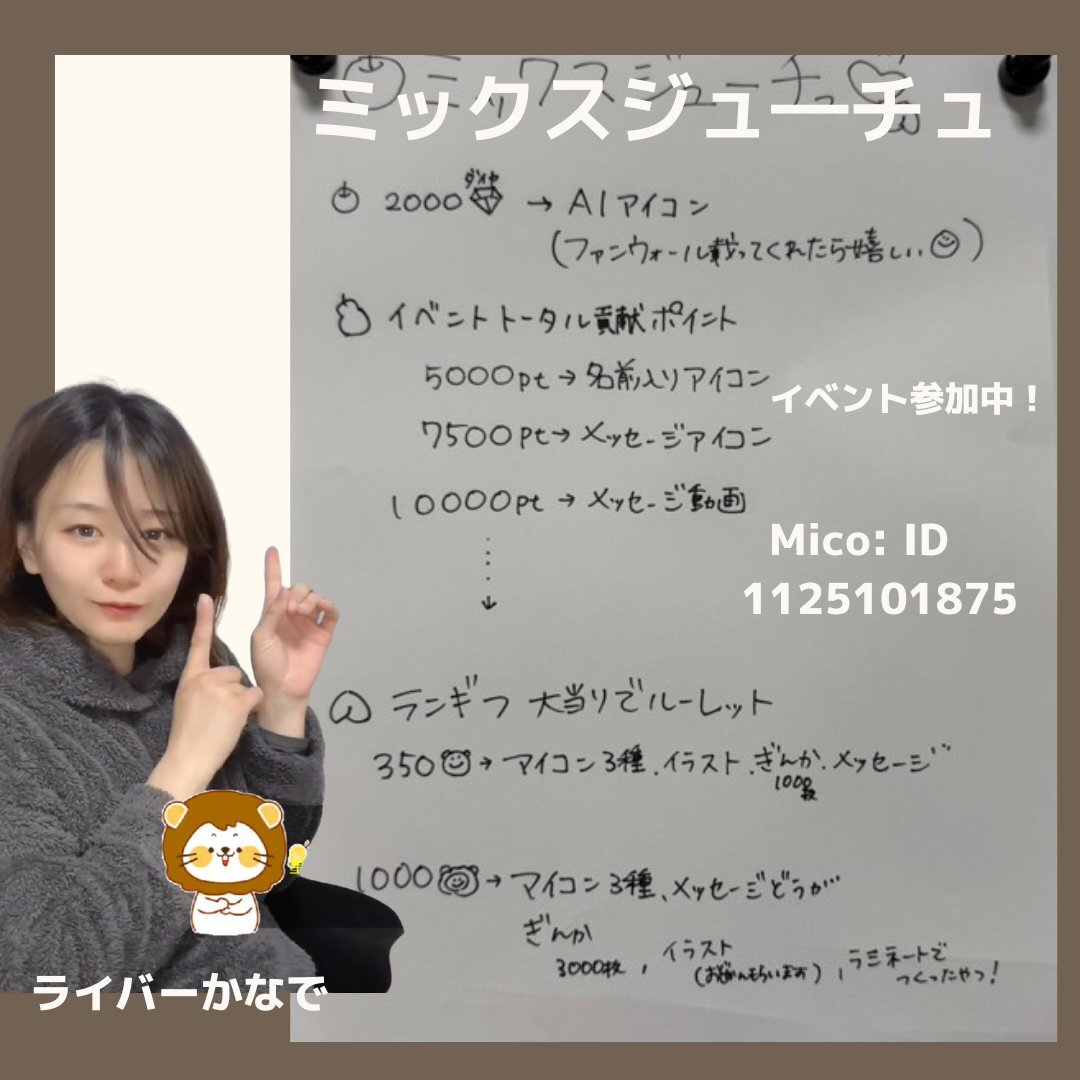 ミックスジューチュ
ミックスジューチュ
2000 ダイヤ → AIアイコン
(ファンウォール載ってくれたら嬉しい)
イベントトータル貢献ポイント
5000pt → 名前入りアイコン
イベント参加中！
7500pt → メッセージアイコン
10000pt → メッセージ動画
Mico: ID
1125101875
ランギフ 大当りでルーレット
350 → マイコン3種、イラスト、ぎんか、メッセージ
1000枚
1000 → マイコン3種、メッセージどうが
ぎんか
3000枚, イラスト
, ラミネートで
つくったやつ!
ライバーかなで